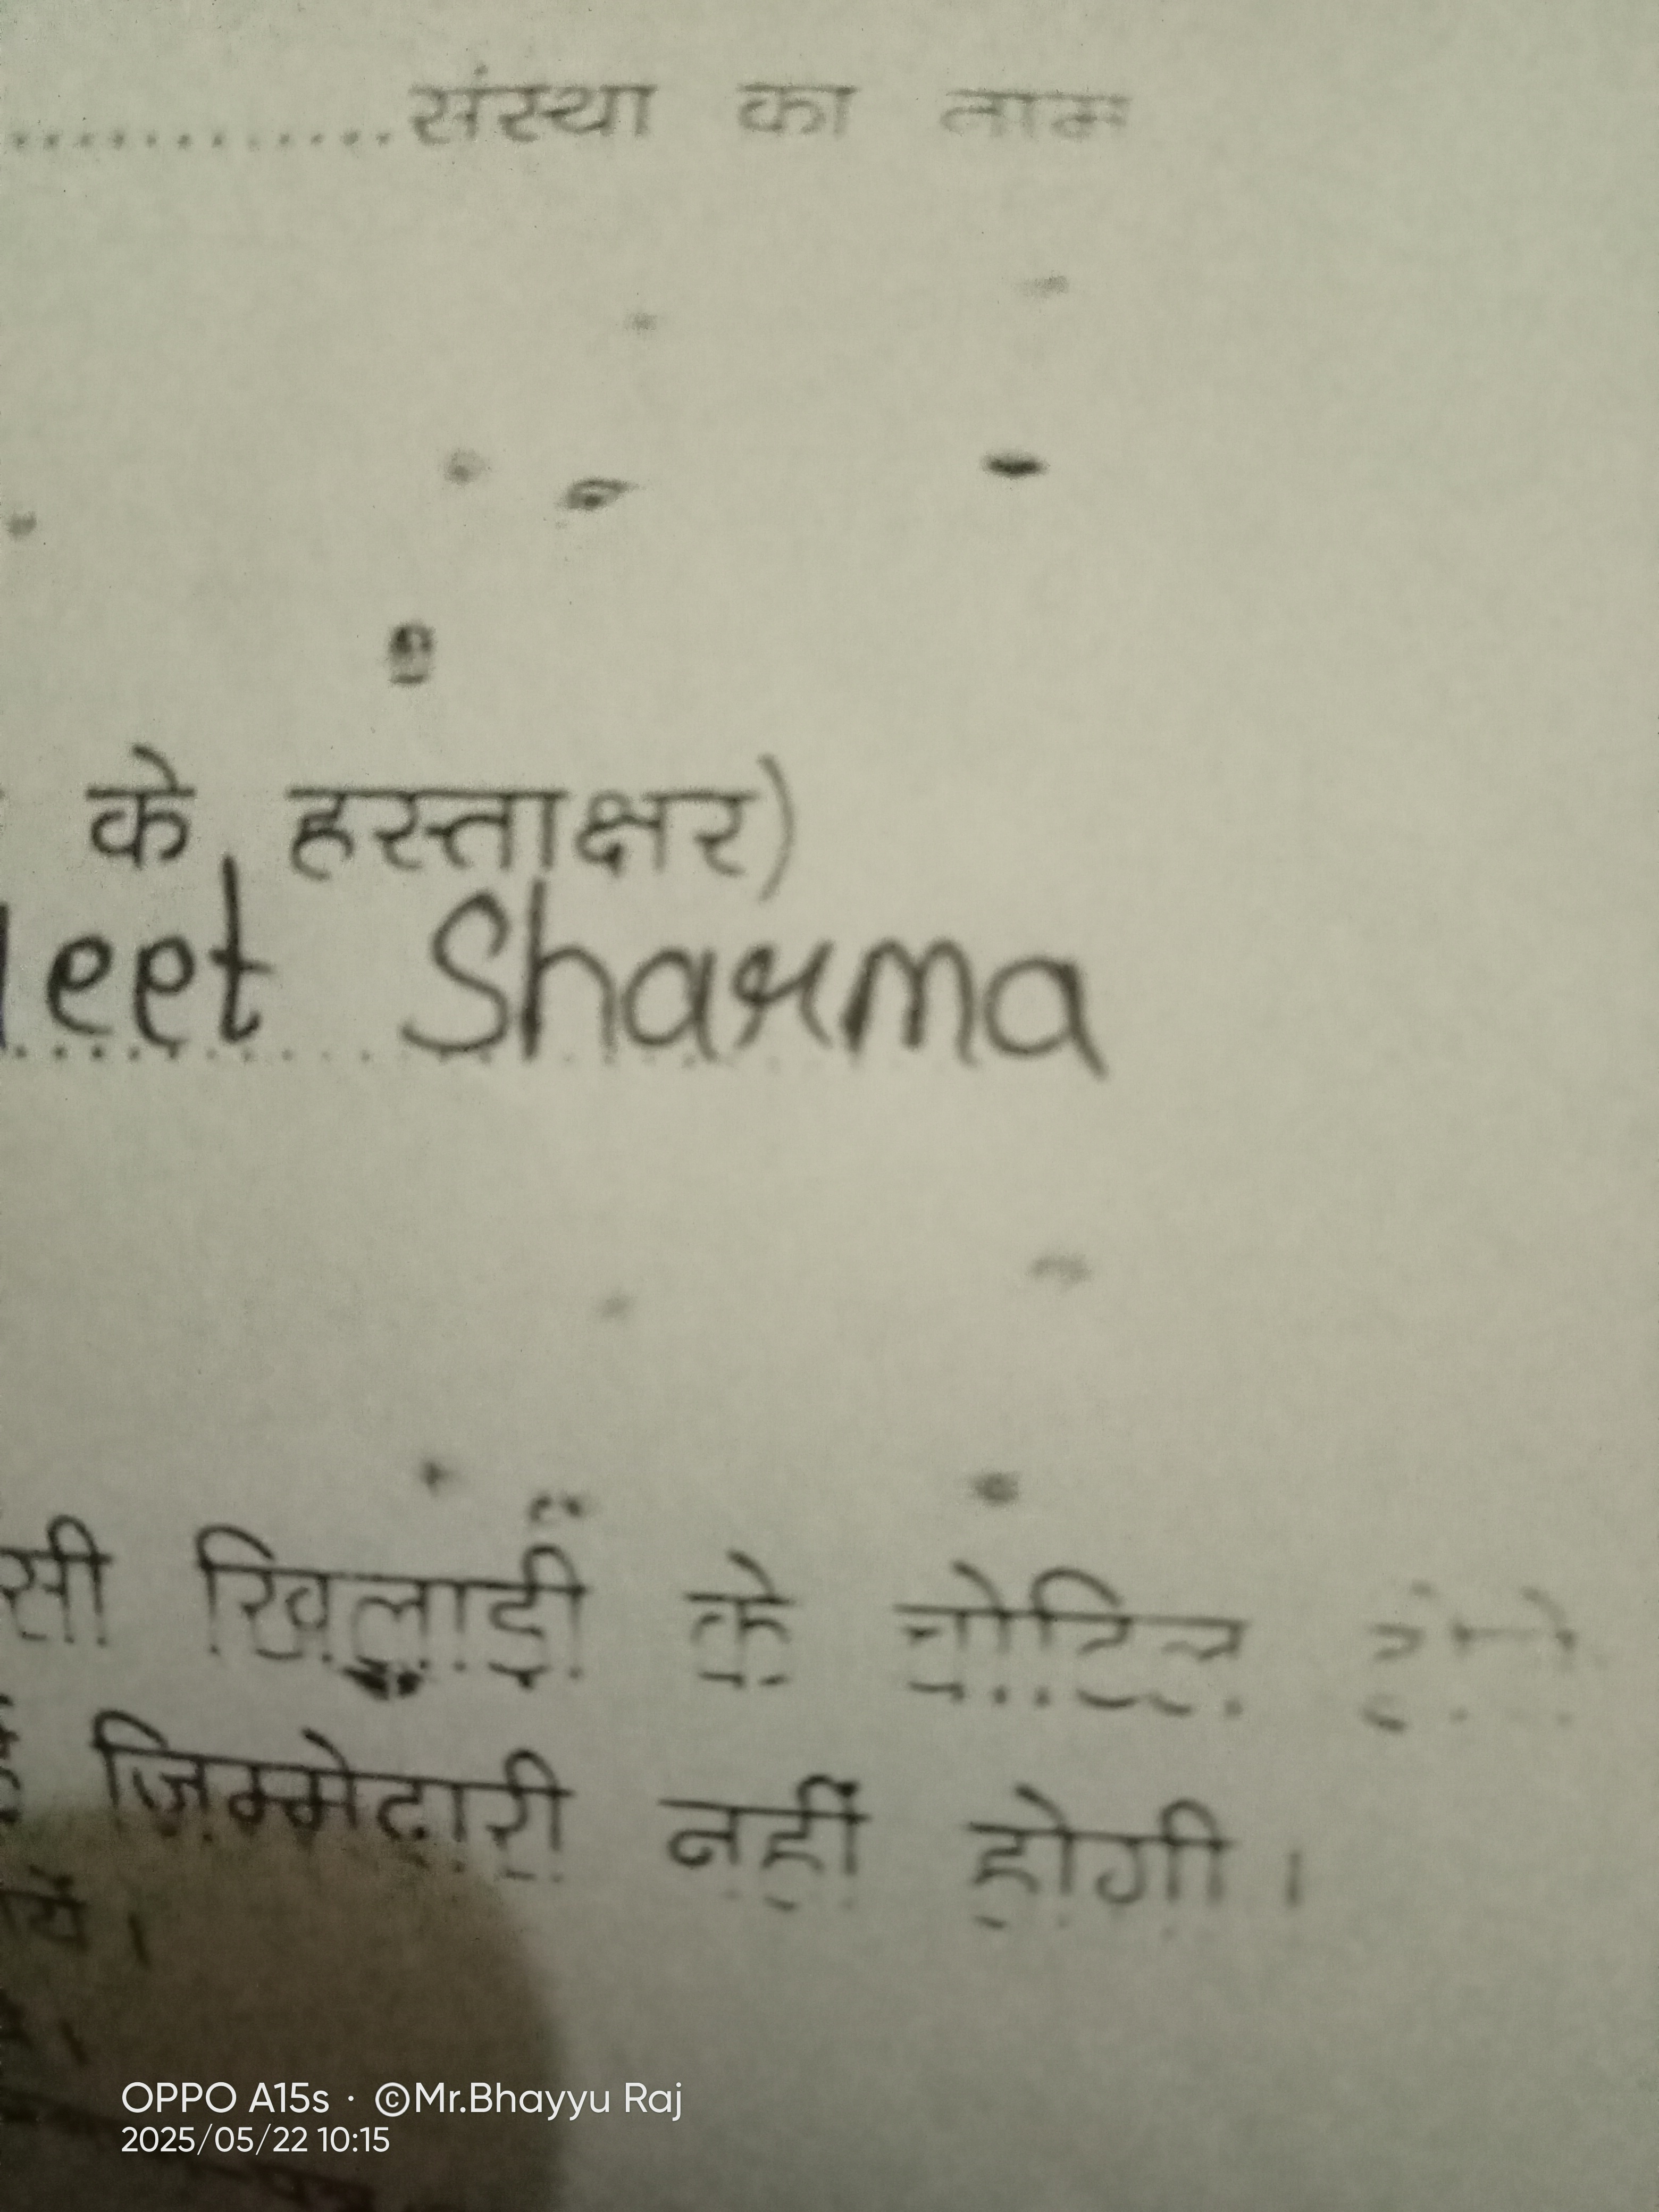 .............संस्था का नाम
के हस्ताक्षर)
eet Sharma
सी खिलाड़ी के चोटिल होने
जिम्मेदारी नहीं होगी।
OPPO A15s · ©Mr.Bhayyu Raj
2025/05/22 10:15